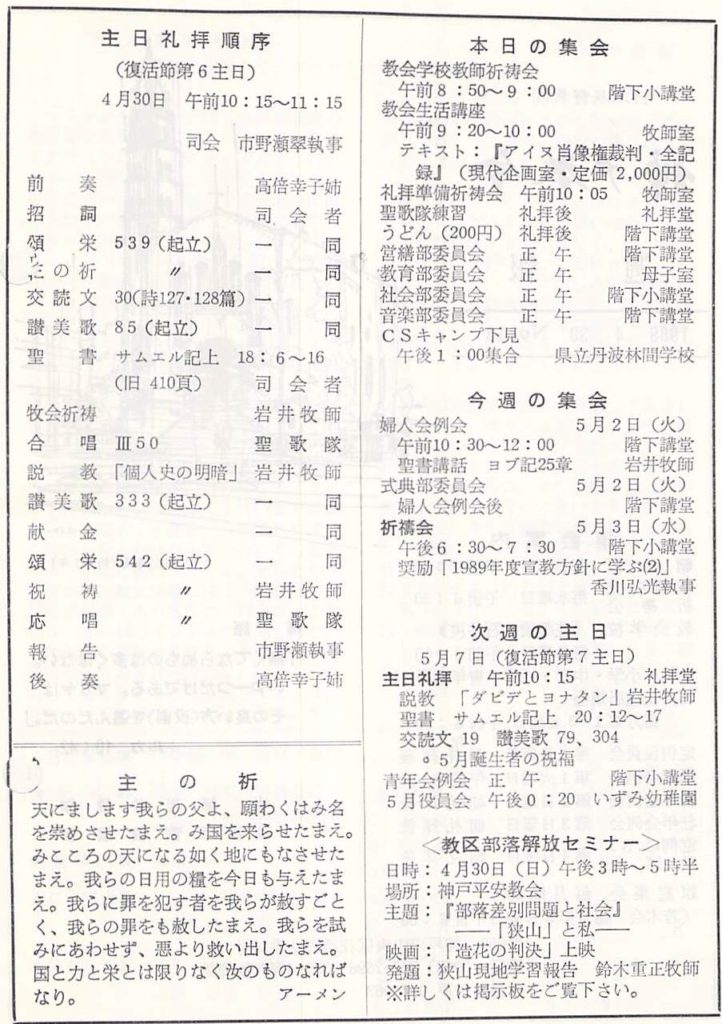 主日礼拝順序
(復活節第6主日)
4月30日 午前10:15〜11:15
司会 市野瀬翠執事
前奏 高倍幸子姉
招詞 司会者
頌栄 539(起立) 一同
主の祈 〃 一同
交読文 30(詩127・128篇) 一同
讃美歌 85(起立) 一同
聖書 サムエル記上 18:6〜16
(旧 410頁) 司会者
牧会祈祷 岩井牧師
合唱 Ⅲ50 聖歌隊
説教 「個人史の明暗」 岩井牧師
讃美歌 333(起立) 一同
献金 一同
頌栄 542(起立) 一同
祝祷 〃 岩井牧師
応唱 〃 聖歌隊
報告 市野瀬執事
後奏 高倍幸子姉
主の祈
天にまします我らの父よ、願わくはみ名
を崇めさせたまえ。み国を来らせたまえ。
みこころの天になる如く地にもなさせた
まえ。我らの日用の糧を今日も与えたま
え。我らに罪を犯す者を我らが赦すごと
く、我らの罪をも赦したまえ。我らを試
みにあわせず、悪より救い出したまえ。
国と力と栄とは限りなく汝のものなれば
なり。 アーメン
本日の集会
教会学校教師祈祷会
午前8:50〜9:00 階下小講堂
教会生活講座
午前9:20〜10:00 牧師室
テキスト:『アイヌ肖像権裁判・全記
録』(現代企画室・定価 2,000円)
礼拝準備祈祷会 午前10:05 牧師室
聖歌隊練習 礼拝後 礼拝堂
うどん(200円) 礼拝後 階下講堂
営繕部委員会 正午 階下講堂
教育部委員会 正午 母子室
社会部委員会 正午 階下小講堂
音楽部委員会 正午 階下講堂
CSキャンプ下見
午後1:00集合 県立丹波林間学校
今週の集会
婦人会例会 5月2日(火)
午前10:30〜12:00 階下講堂
聖書講話 ヨブ記25章 岩井牧師
式典部委員会 5月2日(火)
婦人会例会後 階下講堂
祈祷会 5月3日(水)
午後6:30〜7:30 階下小講堂
奨励「1989年度宣教方針に学ぶ(2)」
香川弘光執事
次週の主日
5月7日(復活節第7主日)
主日礼拝 午前10:15 礼拝堂
説教 「ダビデとヨナタン」岩井牧師
聖書 サムエル記上 20:12〜17
交読文 19 讃美歌 79、304
○5月誕生者の祝福
青年会例会 正午 階下小講堂
5月役員会 午後0:20 いずみ幼稚園
<教区部落解放セミナー>
日時:4月30日(日)午後3時〜5時半
場所:神戸平安教会
主題:『部落差別問題と社会』
――「狭山」と私――
映画:「造花の判決」上映
発題:狭山現地学習報告 鈴木重正牧師
※詳しくは掲示板をご覧下さい。